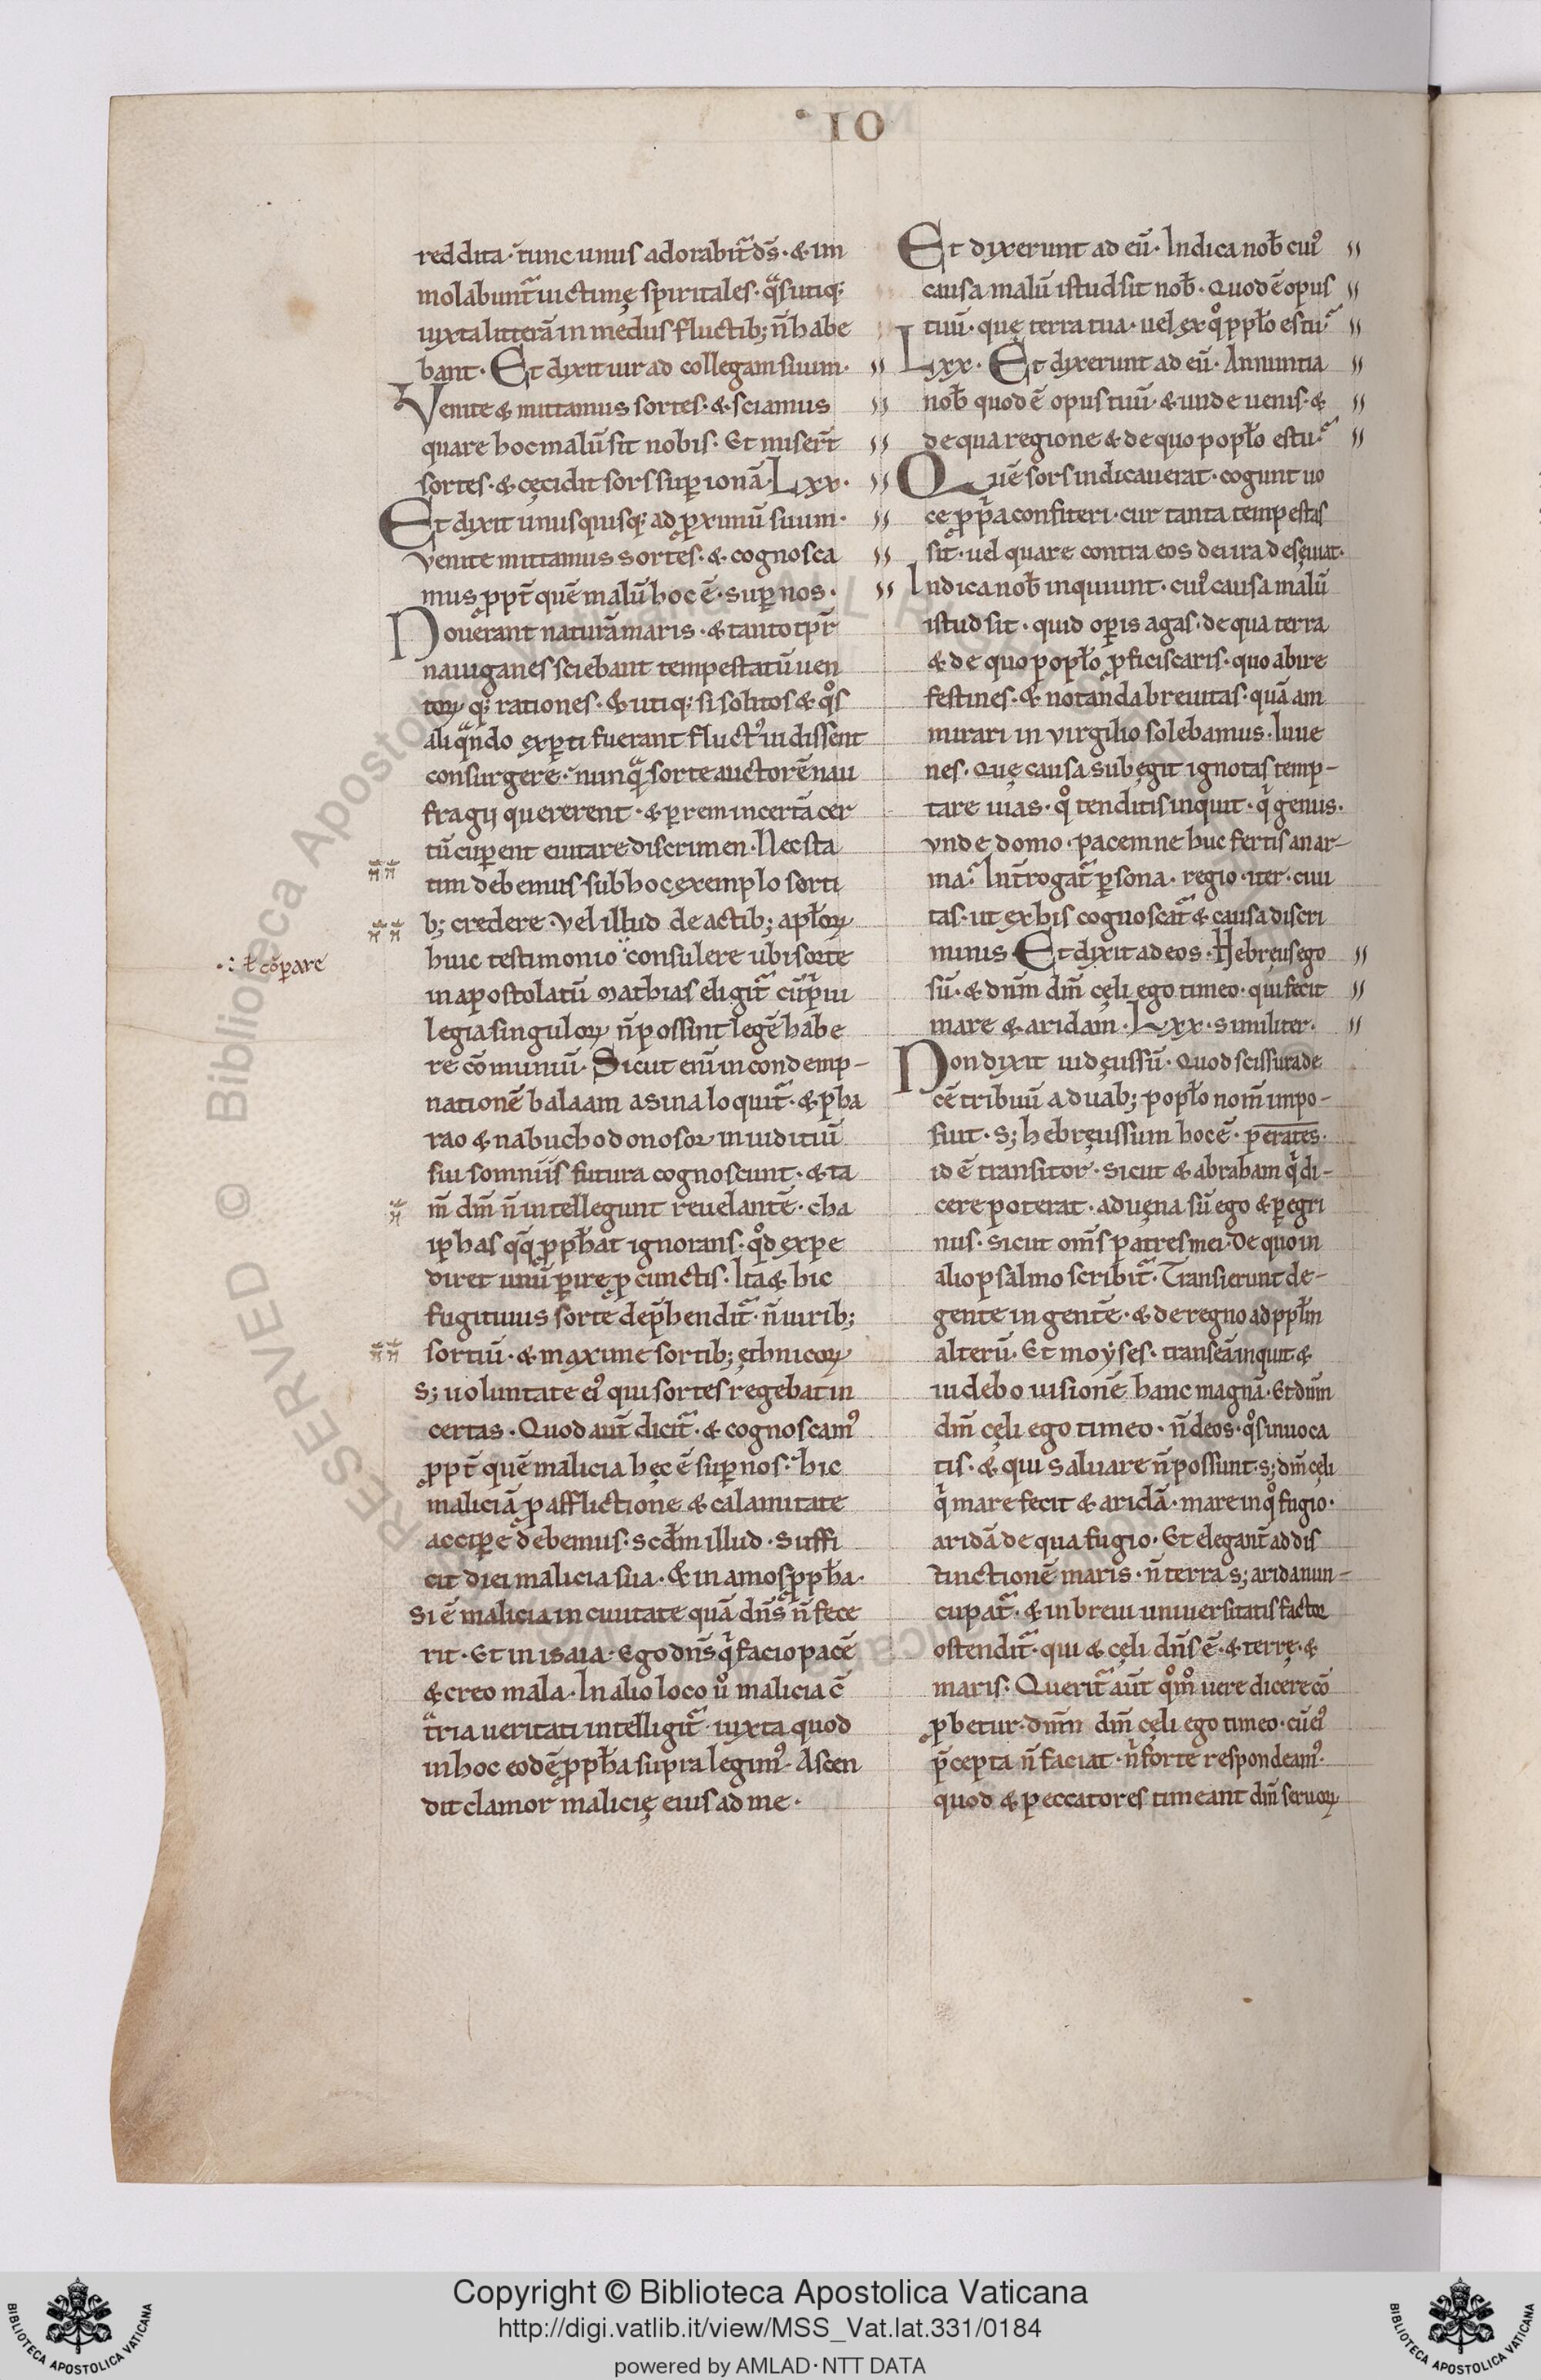 · IO
reddita· tunc unus adorabit᷑ ds̄· & im
molabunt᷑ uictimę spiritales· qͣs utiq;
iuxta litterā in mediis fluctib; n̄ habe
bant· Et dixit uir ad collegam suum·
Venite & mittamus sortes· & sciamus
quare hoc malū sit nobis· Et miser̄t
sortes· & cęcidit sors sup̲ ionā· Lxx·
Et dixit unusquisq; ad ꝓximū suum·
venite mittamus sortes· & cognosca
mus ꝓpt̄ quē malū hoc ē· sup̲ nos·
Nouerant naturā maris· & tanto tp̄r
nauiganes sciebant tempestatū uen
toꝝ q; rationes· & utiq; si solitos & qͦs
aliqͣndo exp̲ti fuerant fluctꝰ uidissent
consurgere· nunqͣ sorte auctorē nau
fragij quererent· & p̲ rem incertā cer
tū cup̲ent euitare discrimen· Nec sta
tim debemus sub hoc exemplo sorti
b; credere· vel illud de actib; apl̄oꝝ
huic testimonio consulere ubi sorte
·: ł cōparare
in apostolatū Mathias eligit᷑ cū p̄ui
legia singuloꝝ n̄ possint legē habe
re cōmuniū· Sicut eni̅ in condemp-
nationē balaam asina loquit᷑· & pha
rao & nabuchodonosor in iuditiū
siu somniis futura cognoscunt· & ta
m̄ dm̄ n̄ intellegunt reuelantē· cha
iphas qͣq ꝓph̄at ignorans· qͦd expe
diret unū p̲ire ꝓ cunctis· Ita & hic
fugitiuus sorte dep̄hendit᷑· n̄ uirib;
sortiū· & maxime sortib; ethnicoꝝ
s; uoluntate eiꝰ qui sortes regebat in
certas· Quod aut̄ dicit᷑· & cognoscamꝰ
ꝓpt̄ quē malicia hęc ē sup̲ nos· hic
maliciā ꝓ afflictione & calamitate
accip̲e debemus· scd̄m illud· Suffi
cit diei malicia sua· & in amos ꝓph̄a·
Si ē malicia in ciuitate quā dn̄s n̄ fece
rit· Et in isaia· Ego dn̄s qͥ facio pacē
& creo mala· In alio loco uͦ malicia c̄
tͣria ueritati intelligit᷑· iuxta quod
in hoc eodē ꝓph̄a supra legimꝰ· Ascen
dit clamor malicię eius ad me·
Et dixerunt ad eū· Indica nob̄ cuiꝰ
causa malū istud sit nob̄· Quod ē opus
tuū· quę terra tua· uel ex qͦ ppl̄o es tu·
Lxx· Et dixerunt ad eū· Annuntia
nob̄ quod ē opus tuū· & unde uenis· &
de qua regione & de quo popl̄o es tu·
Quē sors indicauerat· cogunt uo
ce ꝓpͥa confiteri· cur tanta tempestas
sit· uel quare contra eos dei ira deseuiat·
Indica nob̄ inquiunt· cuiꝰ causa malū
istud sit· quid op̲is agas· de qua terra
& de quo popl̄o ꝓficiscaris· quo abire
festines· & notanda breuitas· quā am
mirari in virgilio solebamus· Iuue
nes· Quę causa subęgit ignotas temp-
tare uias· qͦ tenditis inquit· qͥ genus·
vnde domo· pacemne huc fertis an ar-
ma· Int̄rogat᷑ p̲sona· regio· iter· ciui
tas· ut ex his cognoscat᷑ & causa discri
minis Et dixit ad eos· Hebręus ego
sū· & dn̄m dm̄ cęli ego timeo· qui fecit
mare & aridam· Lxx· similiter·
Non dixit iudęus sū· Quod scissura de
cē tribuū a duab; popl̄o nom̄ impo-
suit· S; hebręus sum hoc ē· perates·
id ē transitor· sicut & abraham qͥ di-
cere poterat· aduęna sū ego & p̲egri
nus· Sicut om̄s patres mei· De quo in
alio psalmo scribit᷑· Transierunt de-
gente in gentē· & de regno ad ppl̄m
alterū· Et moyses· transeā inquit &
uidebo uisionē hanc magnā· Et dn̄m
dm̄ cęli ego timeo· n̄ deos· qͦs inuoca
tis· & qui saluare n̄ possunt· s; dm̄ cęli
qͥ mare fecit & aridā· mare in qͦ fugio·
aridā de qua fugio· Et elegant̄ ad dis
tinctionē maris· n̄ terra s; arida nun-
cupat᷑· & in breui uniuersitatis factor
ostendit᷑· qui & cęli dn̄s ē· & terrę· &
maris· Querit᷑ aut̄ qͦmͦ uere dicere cō
ꝓbetur· dn̄m dm̄ cęli ego timeo· cū eiꝰ
p̄cepta n̄ faciat· nͥ forte respondeamꝰ·
quod & peccatores timeant dm̄ seruoꝝ
Copyright © Biblioteca Apostolica Vaticana
http://digi.vatlib.it/view/MSS_Vat.lat.331/0184
powered by AMLAD·NTT DATA
BIBLIOTECA APOSTOLICA VATICANA
BIBLIOTECA APOSTOLICA VATICANA